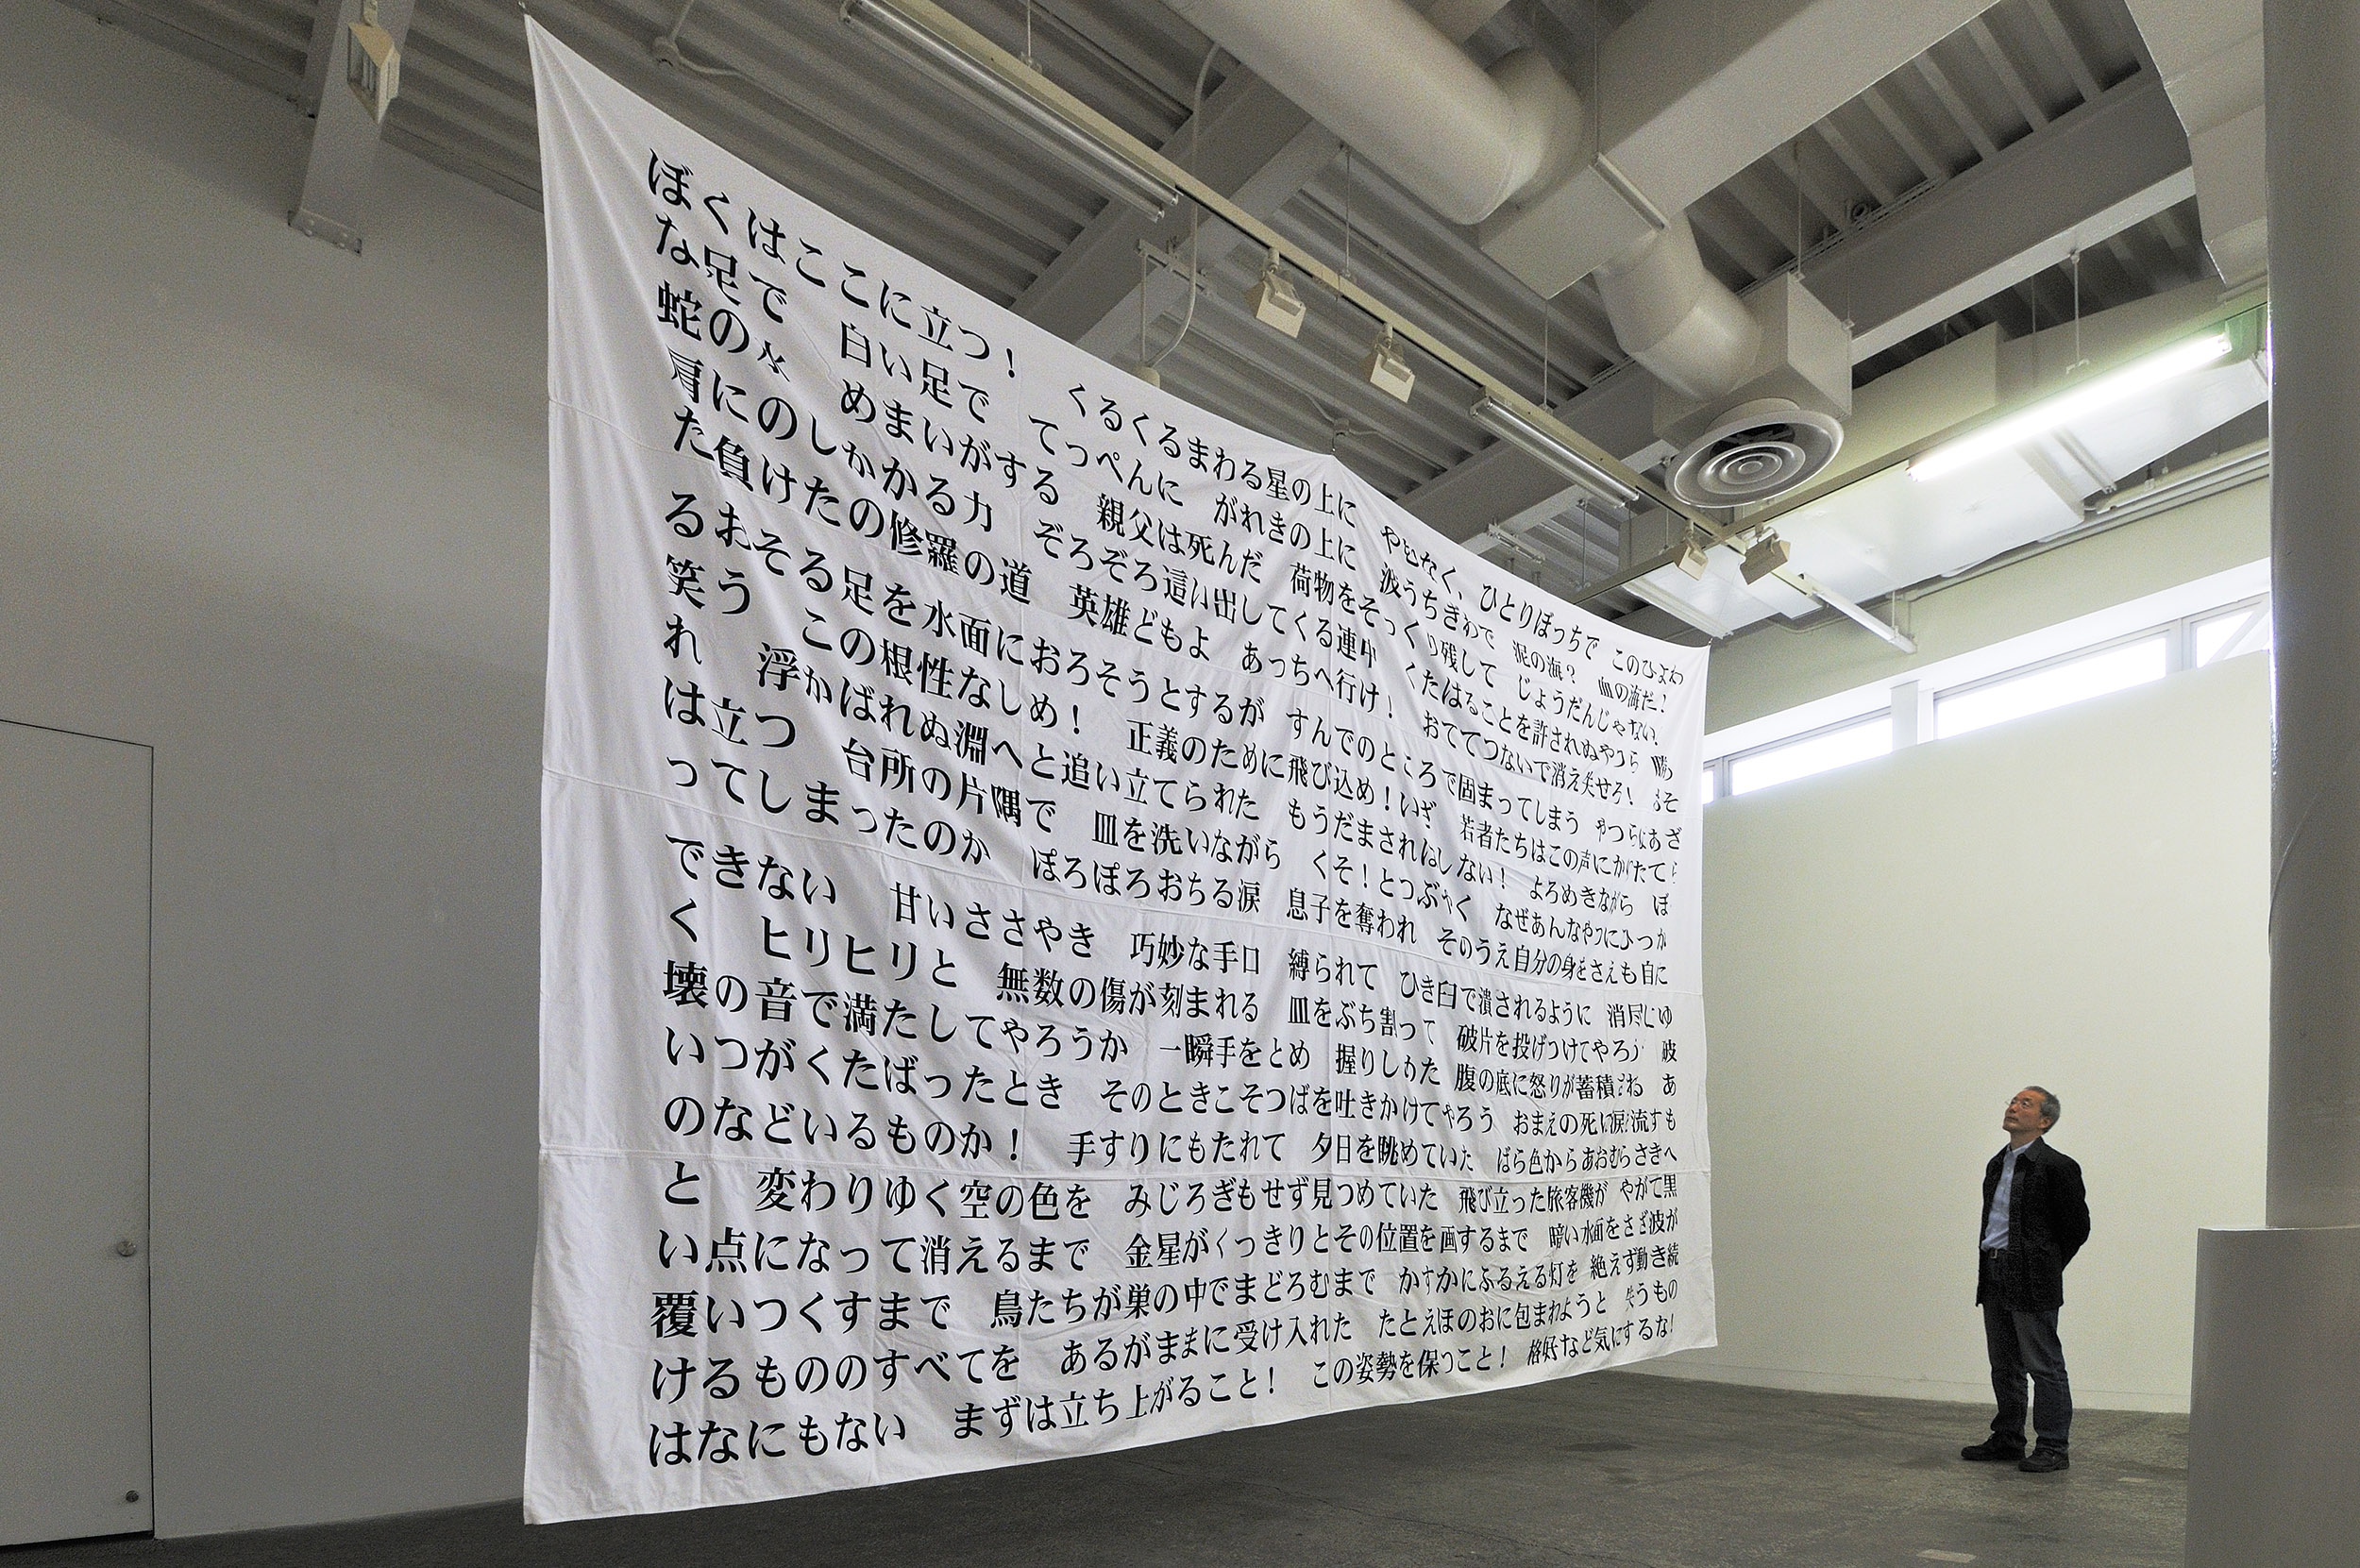 ぼくはここに立つ！　くるくるまわる星の上に　やむなく、ひとりぼっちで　このひよわ
な足で　白い足で　てっぺんに　がれきの上に　波うちきわで　泥の海？　血の海だ！
蛇の　めまいがする　親父は死んだ　荷物をそっくり残して　じょうだんじゃない．
肩にのしかかる力　ぞろぞろ這い出してくる連中　くたばることを許されぬやつら　勝っ
た負けたの修羅の道　英雄どもよ　あっちへ行け！　おててつないで消え失せろ！　おそ
るおそる足を水面におろそうとするが　すんでのところで固まってしまう　やつらはあざ
笑う　この根性なしめ！　正義のために飛び込め！いざ　若者たちはこの声にかりたてら
れ　浮かばれぬ淵へと追い立てられた　もうだまされはしない！　よろめきながら　ぼ
は立つ　台所の片隅で　皿を洗いながら　くそ！とつぶやく　なぜあんなやつにひっか
ってしまったのか　ぽろぽろおちる涙　息子を奪われ　そのうえ自分の身をさえも自に
できない　甘いささやき　巧妙な手口　縛られて　ひき臼で潰されるように　消尽しゆ
く　ヒリヒリと　無数の傷が刻まれる　皿をぶち割って　破片を投げつけてやろう　破
壊の音で満たしてやろうか　一瞬手をとめ　握りしめた　腹の底に怒りが蓄積され　あ
いつがくたばったとき　そのときこそつばを吐きかけてやろう　おまえの死に涙流すも
のなどいるものか！　手すりにもたれて　夕日を眺めていた　ばら色からあおむらさきへ
と　変わりゆく空の色を　みじろぎもせず見つめていた　飛び立った旅客機が　やがて黒
い点になって消えるまで　金星がくっきりとその位置を画するまで　暗い水面をさざ波が
覆いつくすまで　鳥たちが巣の中でまどろむまで　かすかにふるえる灯を　絶えず動き続
けるもののすべてを　あるがままに受け入れた　たとえほのおに包まれようと　失うもの
はなにもない　まずは立ち上がること！　この姿勢を保つこと！　格好など気にするな！